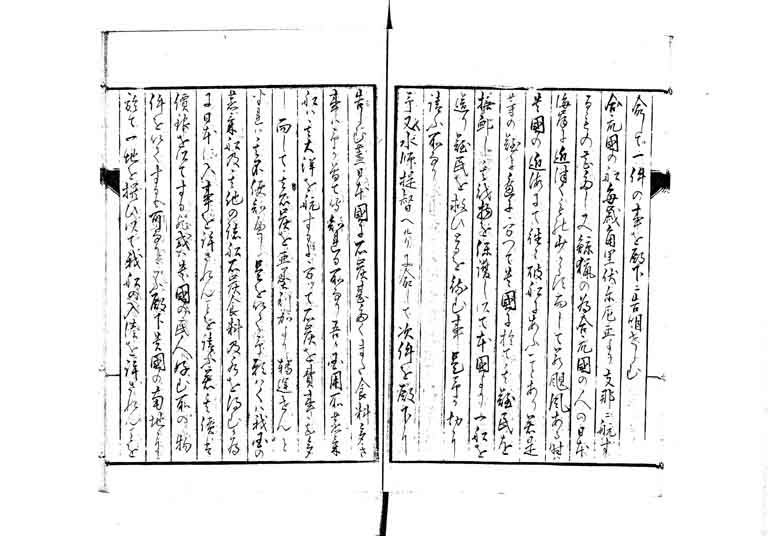 命して一件の事を殿下に告明せしむ
合衆国の舩毎歳角里伏尓尼亜より支那に航す
るもの多し又鯨猟の為合衆国の人の日本
海岸に近づくもの少からず而して若颶風ある時は
貴国の近海にて往々破船にあふことあり若是
等の難に遇ふに方つて貴国に於て其難民を
撫卹し其残物を保護し以て本国より一舩を
送り難民を救ひ取るを待しむ事是予か切に
請ふ所なり
予又水師提督ヘルリに命して次件を殿下に
告しむ蓋日本国に石炭甚多くまた食料多き
事は予か曽て聞知する所なり吾か国用所の蒸気
舩は其大洋を航するに方つて石炭を費す事甚多
し而して其石炭を亜墨利加より搬運せんと
すれは其不便知るへし是を以て予願はくは我国の
蒸気舩及其他の諸舩石炭食料及水を得んか為
に日本に入る事を許されんことを請ふ若其償は
価銀を以てするも或は貴国の民人好む所の物
件を以てするも可なり請ふ殿下貴国の南地にて
一地を択ひ以て我舩の入港を許されんことを